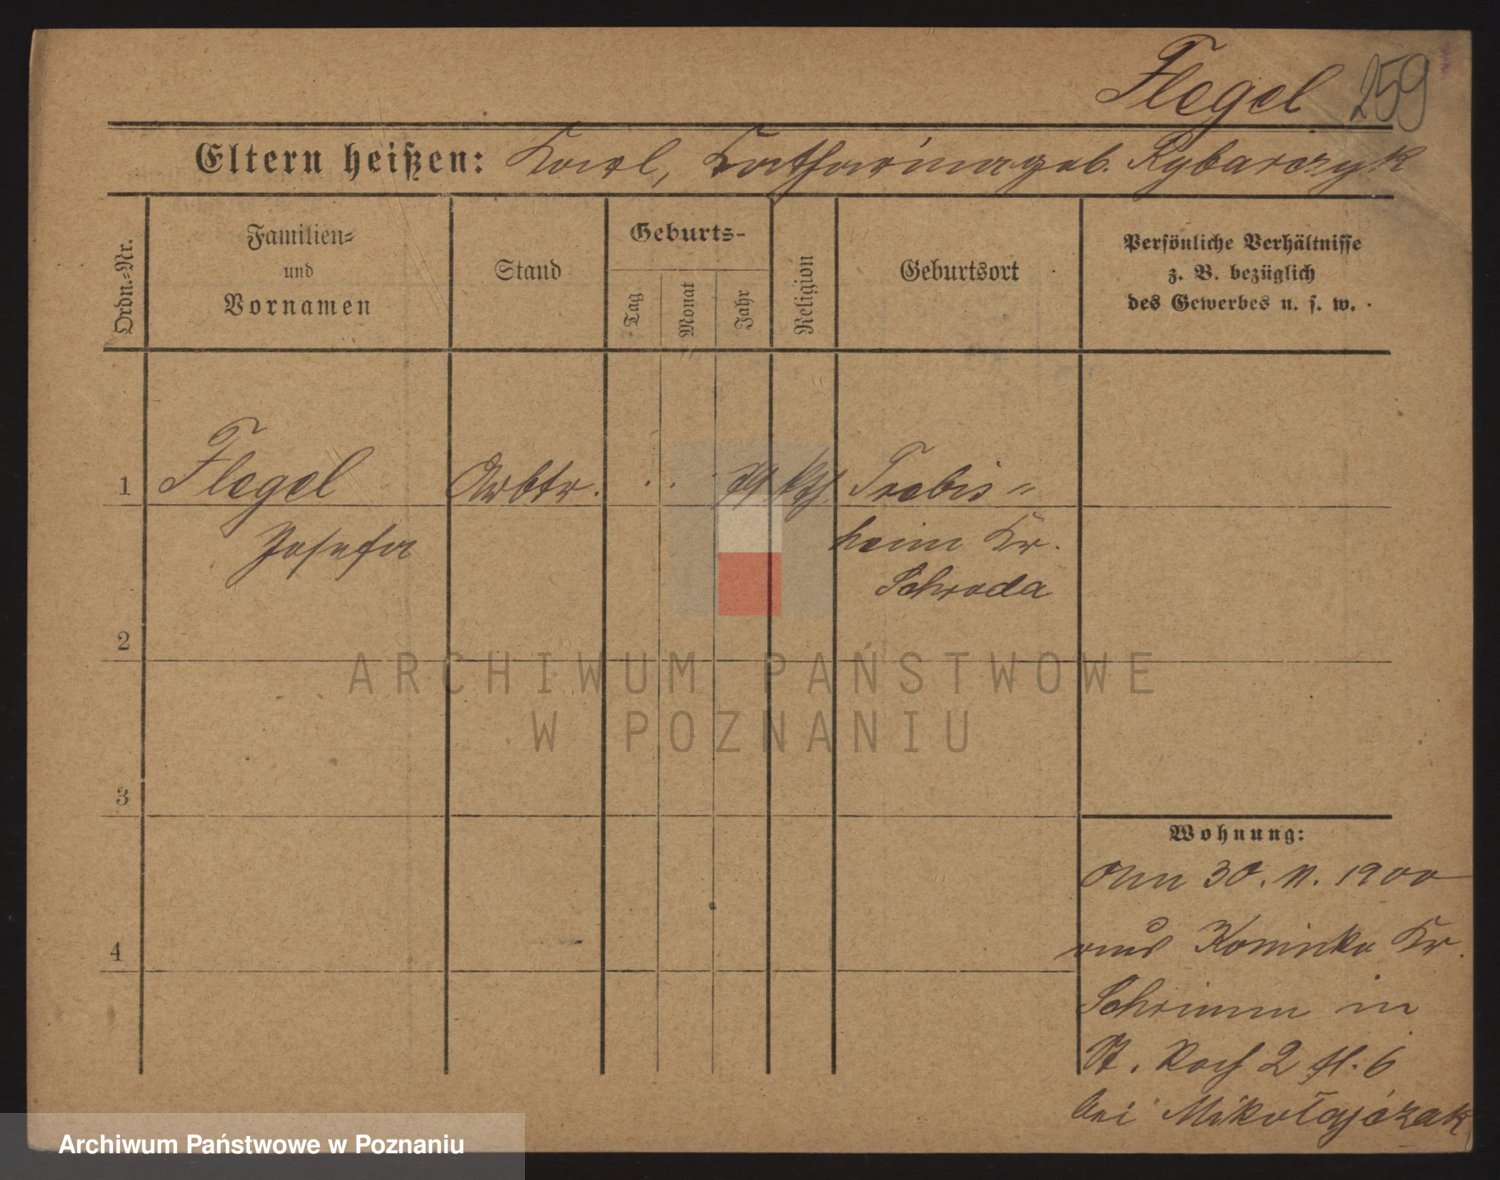 Flegel 259
Eltern heißen: Karl, Katharina geb. Rybarczyk
Ordn.-Nr.
Familien-
und
Vornamen
Stand
Geburts-
Tag
Monat
Jahr
Religion
Geburtsort
Persönliche Verhältnisse
z. B. bezüglich
des Gewerbes u. s. w.
1 Flegel Arbtr. . . kth Trebis-
Josefa heim Kr.
Schroda
2
3
4
Wohnung:
Am 30. 11. 1900
aus Kr.
Schrimm in
St. Roch 2 fl. 6
bei Mikołajczak
ARCHIWUM PAŃSTWOWE
W POZNANIU
Archiwum Państwowe w Poznaniu